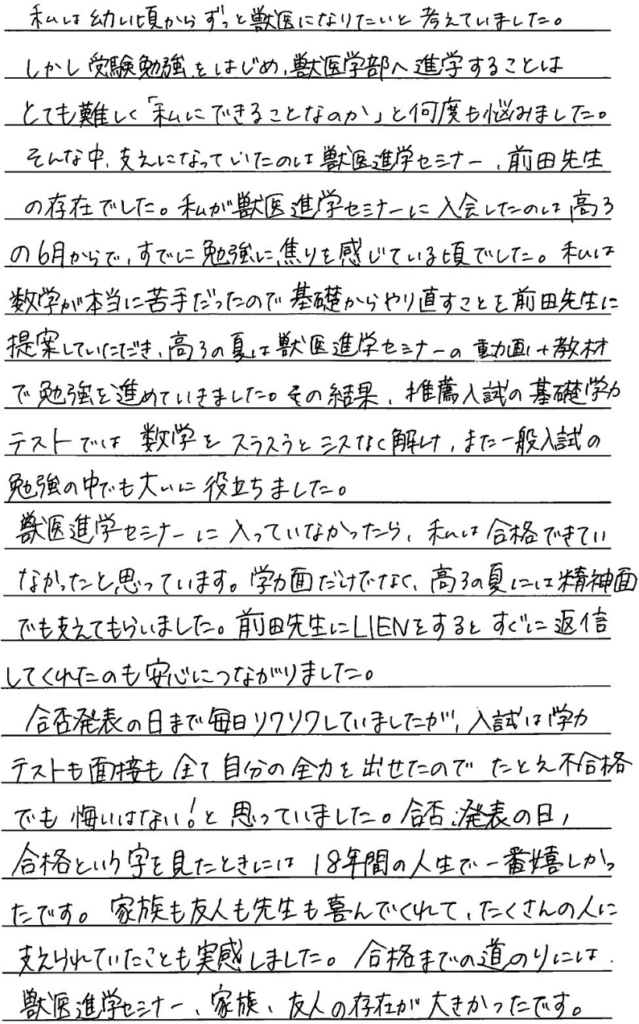 私は幼い頃からずっと獣医になりたいと考えていました。
しかし受験勉強をはじめ、獣医学部へ進学することは
とても難しく「私にできることなのか」と何度も悩みました。
そんな中、支えになっていたのは獣医進学セミナー、前田先生
の存在でした。私が獣医進学セミナーに入会したのは高3
の6月からで、すでに勉強に焦りを感じている頃でした。私は
数学が本当に苦手だったので基礎からやり直すことを前田先生に
提案していただき、高3の夏は獣医進学セミナーの動画+教材
で勉強を進めていきました。その結果、推薦入試の基礎学力
テストでは数学をスラスラとミスなく解け、また一般入試の
勉強の中でも大いに役立ちました。
獣医進学セミナーに入っていなかったら、私は合格できてい
なかったと思っています。学力面だけでなく、高3の夏には精神面
でも支えてもらいました。前田先生にLIENをするとすぐに返信
してくれたのも安心につながりました。
合否発表の日まで毎日ソワソワしていましたが、入試は学力
テストも面接も全て自分の全力を出せたのでたとえ不合格
でも悔いはない!と思っていました。合否発表の日、
合格という字を見たときには18年間の人生で一番嬉しかっ
たです。家族も友人も先生も喜んでくれて、たくさんの人に
支えられていたことも実感しました。合格までの道のりには、
獣医進学セミナー、家族、友人の存在が大きかったです。